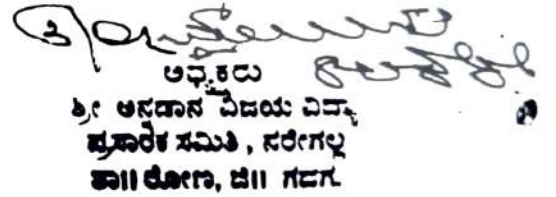 ಅಧ್ಯಕ್ಷರು
ಶ್ರೀ ಅನ್ನದಾನ ವಿಜಯ ವಿದ್ಯಾ
ಪ್ರಸಾರಕ ಸಮಿತಿ, ನರೇಗಲ್ಲ
ತಾ॥ ರೋಣ, ಜಿ॥ ಗದಗ.